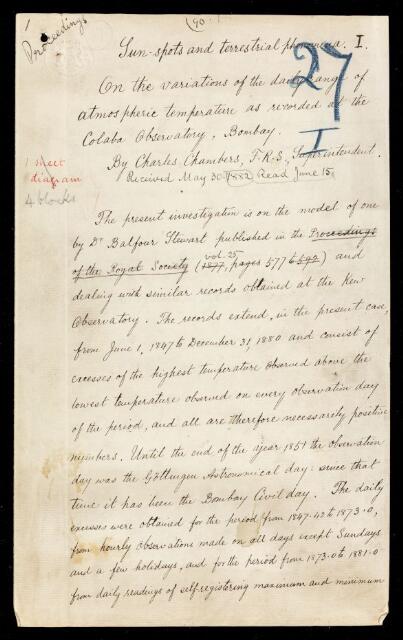 Proceedings
(90)
Sun-spots and terrestrial phenomena. I.
27
I
On the variations of the daily range of
atmospheric temperature as recorded at the
Colaba Observatory, Bombay.
By Charles Chambers, F.R.S., Superintendent.
Received May 30, 1882 Read June 15.
1 sheet
diagram
4 blocks
The present investigation is on the model of one
by Dr Balfour Stewart published in the Proceedings
of the Royal Society (1877, vol. 25 pages 577 to 592) and
dealing with similar records obtained at the Kew
Observatory. The records extend, in the present case,
from June 1, 1847 to December 31, 1880 and consist of
excesses of the highest temperature observed above the
lowest temperature observed on every observation day
of the period, and all are therefore necessarily positive
numbers. Until the end of the year 1851 the observation
day was the Göttingen Astronomical day: since that
time it has been the Bombay Civil day. The daily
excesses were obtained for the period from 1847.42 to 1873.0,
from hourly observations made on all days except Sundays
and a few holidays, and for the period from 1873.0 to 1881.0
from daily readings of self-registering maximum and minimum